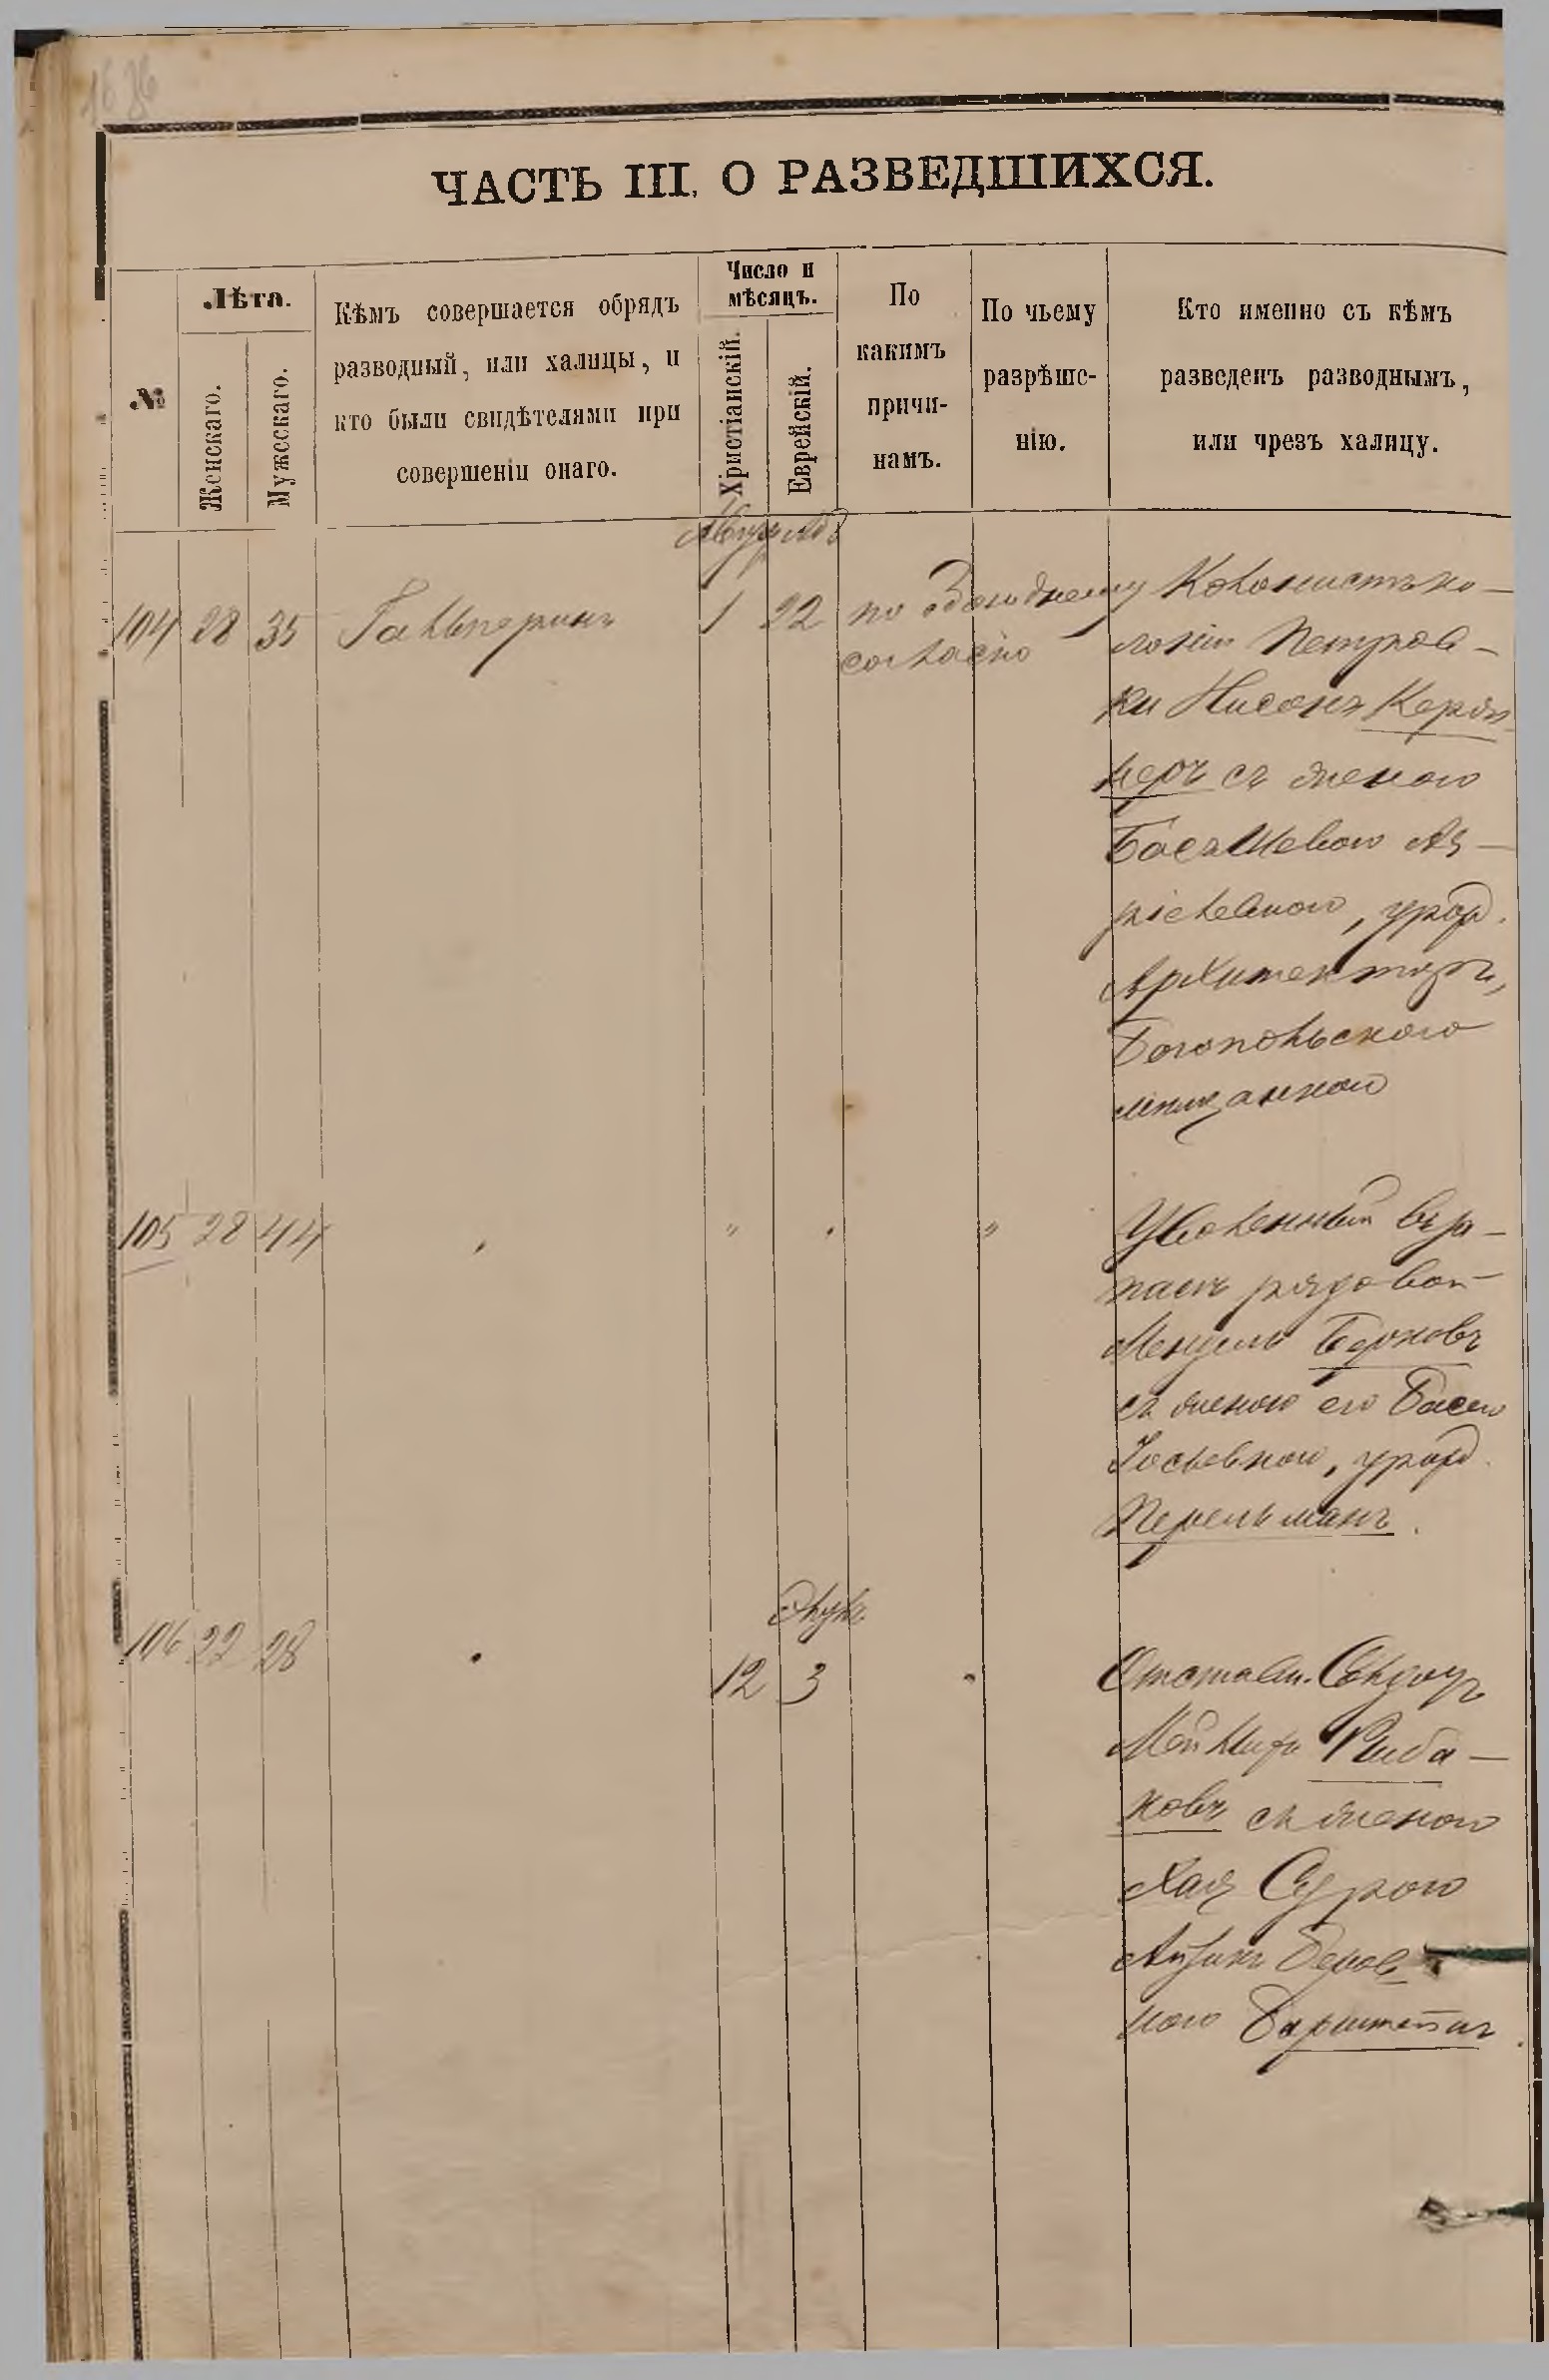 1636
ЧАСТЬ III. О РАЗВЕДШИХСЯ.
№
Лѣта.
Женскаго.
Мужескаго.
Кѣмъ совершается обрядъ
разводный, или халицы, и
кто были свидѣтелями при
совершеніи онаго.
Число и
мѣсяцъ.
Христіанскій.
Еврейскій.
По
какимъ
причи-
намъ.
По чьему
разрѣше-
нію.
Кто именно съ кѣмъ
разведенъ разводнымъ,
или чрезъ халицу.
Авгус Абъ
104 28 35 Гальперинъ 1 22 по обоюдному
согласію
Колонистъ ко-
лоніи Петров-
ки Нисонъ
неръ съ женою
Бася Шевою Аз-
ріелевною, урод.
Архитекторъ,
Богопольскою
мѣщанкою
105 28 44 " "
Уволенный въ за-
пасъ рядовой
Мендель
съ женою его Басею
Іосьевною, урод.
Перельманъ.
Элулъ
106 22 28 12 3
Отставн.
Рыба-
ковъ съ женою
Хая Сурою
Беров-
ною